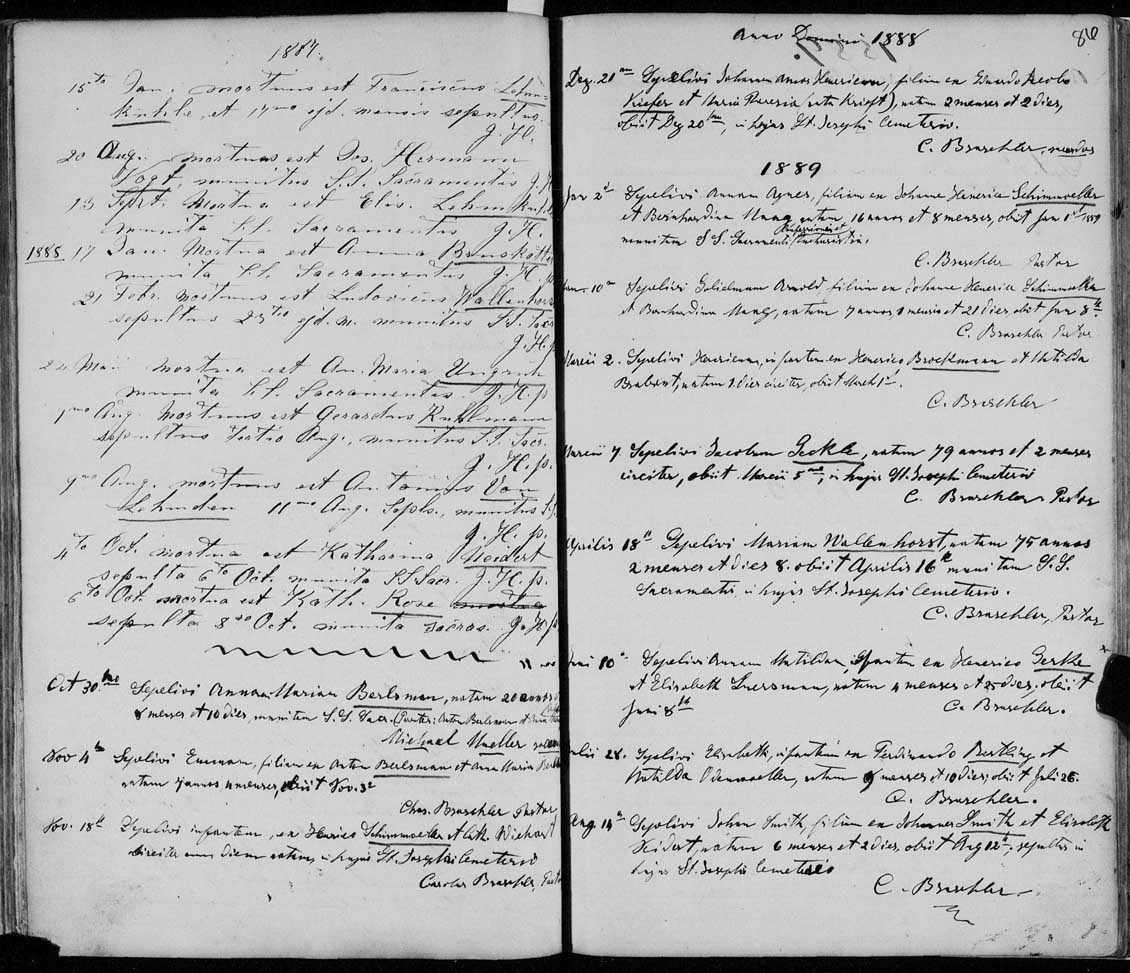 1887.
15to Jan. mortuus est Franciscus Lehm-
kuhle, et 17mo ejd. mensis sepultus.
J. H.
20 Aug. mortuus est Jos. Hermann
Vogt, munitus S.S. Sacramentis J. H.
13 Sept. mortua est Elis. Lehmkuhle
munita S.S. Sacramentis J. H.
1888. 17 Jan. mortua est Anna
munita S.S. Sacramentis J. H. p.
21 Febr. mortuus est Ludovicus Wallenhorst
sepultus 23tio ejd. m. munitus S.S. Sacr.
J. H. p.
Maii mortua est An. Maria
munita S.S. Sacramentis. J. H. p.
Aug. mortuus est Gerardus Kuhlmann
sepultus tertio Aug., munitus S.S. Sacr.
J. H. p.
9no Aug. mortuus est Antonius Von
Lehmden 11mo Aug. Sepls., munitus S.S.
J. H. p.
4to Oct. mortua est Katharina Neidert
sepulta 6to Oct. munita S.S. Sacr. J. H. p.
6to Oct. mortua est Kath. Rose mortua
sepulta 8vo Oct. munita sacras. J. H. p.
Oct 30mo Sepelivi Annam Mariam Berlsman, natam 20 annos
8 menses et 10 dies, munitam S.S. Sacr. (Parentes: Anton Berlsman et
Michael Mueller
Nov 4th Sepelivi Emmam, filiam ex Anton Berlsman et Anna Maria
natam 7 annos 4 menses, obiit Nov. 3d
Chas. Braschler Pastor
Nov. 18th Sepelivi infantem, ex Henrico Schimmoeller et Cath. Wiechart
circiter unum diem natum, in hujus St. Josephi Cemeterio
Carolus Braschler, Pastor
Anno Domini 1888
86
Dez. 21um Sepelivi Johannem Amos Henericum, filium ex Eduardo Jacobo
Kiefer et Maria Theresia (nata), natum 2 menses et 2 dies,
obiit Dez 20um, in hujus St. Josephi Cemeterio.
C. Braschler,
1889
Jan 2d Sepelivi Annam Agnes, filiam ex Johanne Henerico Schimmoeller
et Bernhardina natam 16 annos et 8 menses, obiit Jan 1st 1889
munitam S.S. Sacramenti Eucharistia.
C. Braschler Pastor
Jan 10a Sepelivi Gulielmum Arnold, filium ex Johanne Henerico Schimmoeller
et Bernhardina natum 7 annos, 1 mensis et 21 dies, obiit Jan 8th.
C. Braschler Pastor
Marcii 2. Sepelivi Henericum, infantem ex Henerico Broekmann et Matilda
Brabant, natum 1 dies circiter, obiit March 1st.
C. Braschler
Marcii 7 Sepelivi Jacobum Geckle, natum 79 annos et 2 menses
circiter, obiit Marcii 5, in hujus St. Josephi Cemeterio
C. Braschler Pastor
Aprilis 18th Sepelivi Mariam Wallenhorst, natam 75 annos
2 menses et dies 8. obiit Aprilis 16th munitam S.S.
Sacramentis in hujus St. Josephi Cemeterio.
C. Braschler, Pastor
Juni 10a Sepelivi Annam Matildam, infantem ex Henerico Gerke
et Elisabeth Luersman, natam 4 menses et 25 dies, obiit
Juni 8th C. Braschler.
Julii 28. Sepelivi Elisabeth, infantem ex Ferdinando Bertling et
Matilda Odenweller, natam 9 menses et 10 dies, obiit Juli 26.
C. Braschler.
Aug. 14th Sepelivi Johan Smith, filium ex Johannes Smith et Elisabeth
Neidert, natum 6 menses et 2 dies, obiit Aug 12th, sepultus in
hujus St. Josephi Cemeterio
C. Braschler